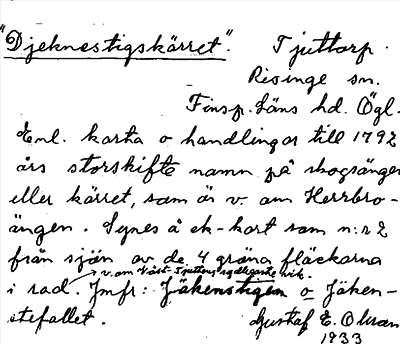 "Djeknestigskärret". Tjuttorp.
Risinge sn.
Finsp. Läns hd. Ögl.
Enl. karta o handlingar till 1792
års storskifte namn på skogsängen
eller kärret, som är v. om Herrbro-
ängen. Synes å ek-kart som n:r 2
från sjön av de 4 gröna fläckarna
v. om Väst-Tjuttens sydligaste vik.
i rad. Jmfr: Jäkenstigen o Jäken-
stefallet. Gustaf E. Olsson
1933